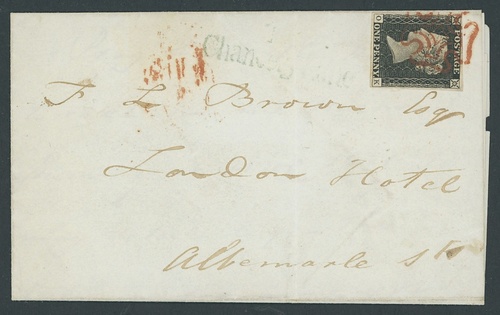 POSTAGE
O K
ONE PENNY
F L Brown Esq
London Hotel
Albemarle St